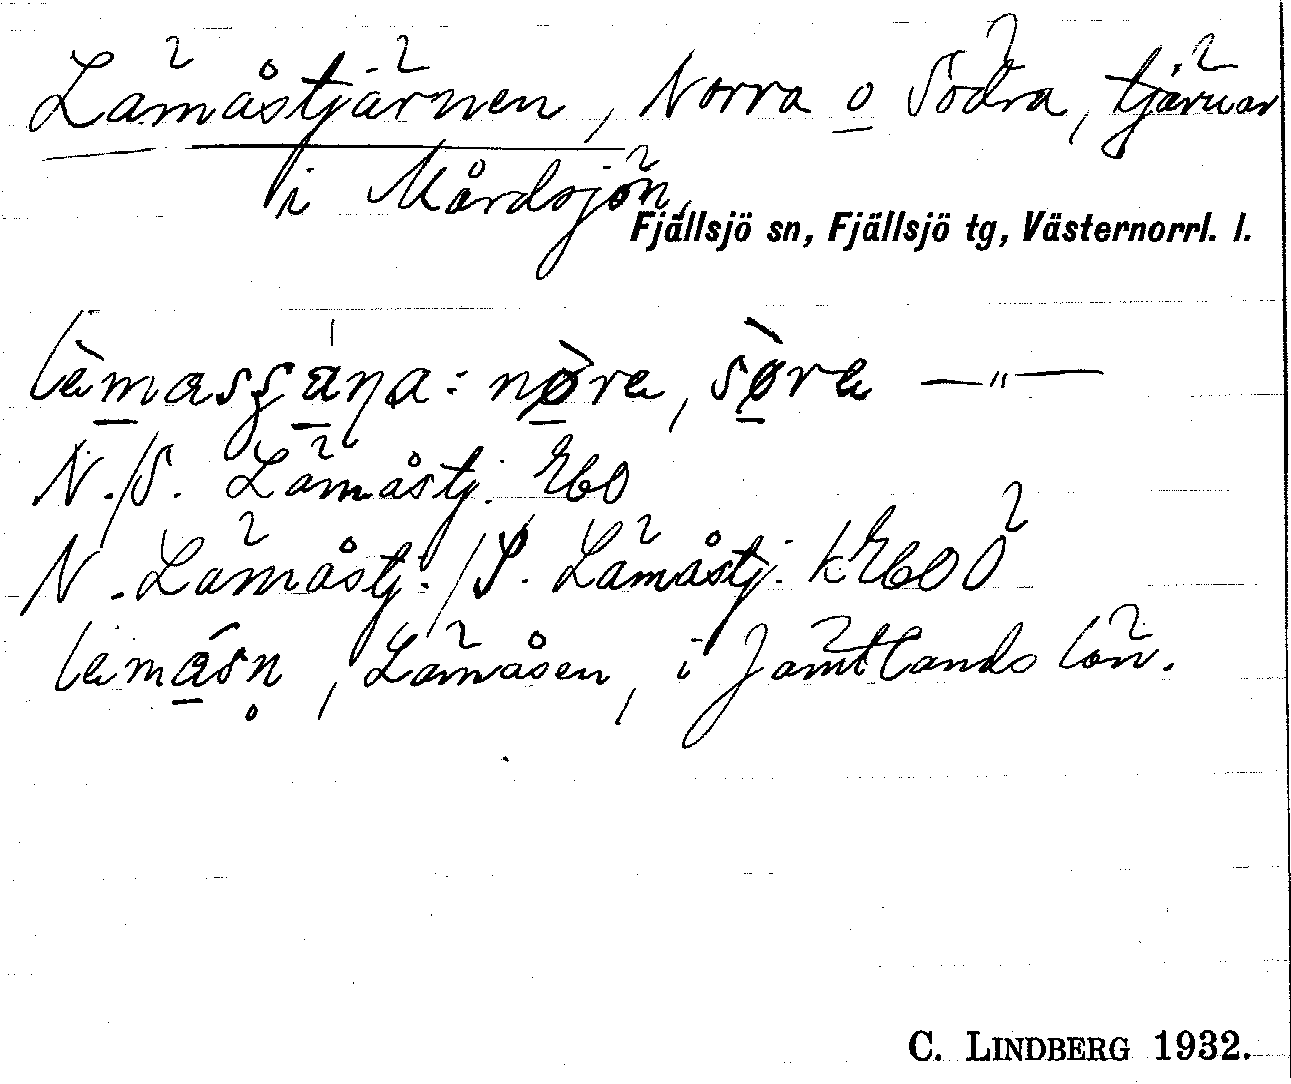 Lämåstjärnen, Norra o Södra, tjärnar
i Mårdsjön,
Fjällsjö sn, Fjällsjö tg, Västernorrl. l.
nøre, søre —〃—
N./S. Lämåstj. Eko
N. Lämåstj./S. Lämåstj. kEkoÖ
Lämåsen, i Jämtlands län.
C. LINDBERG 1932.